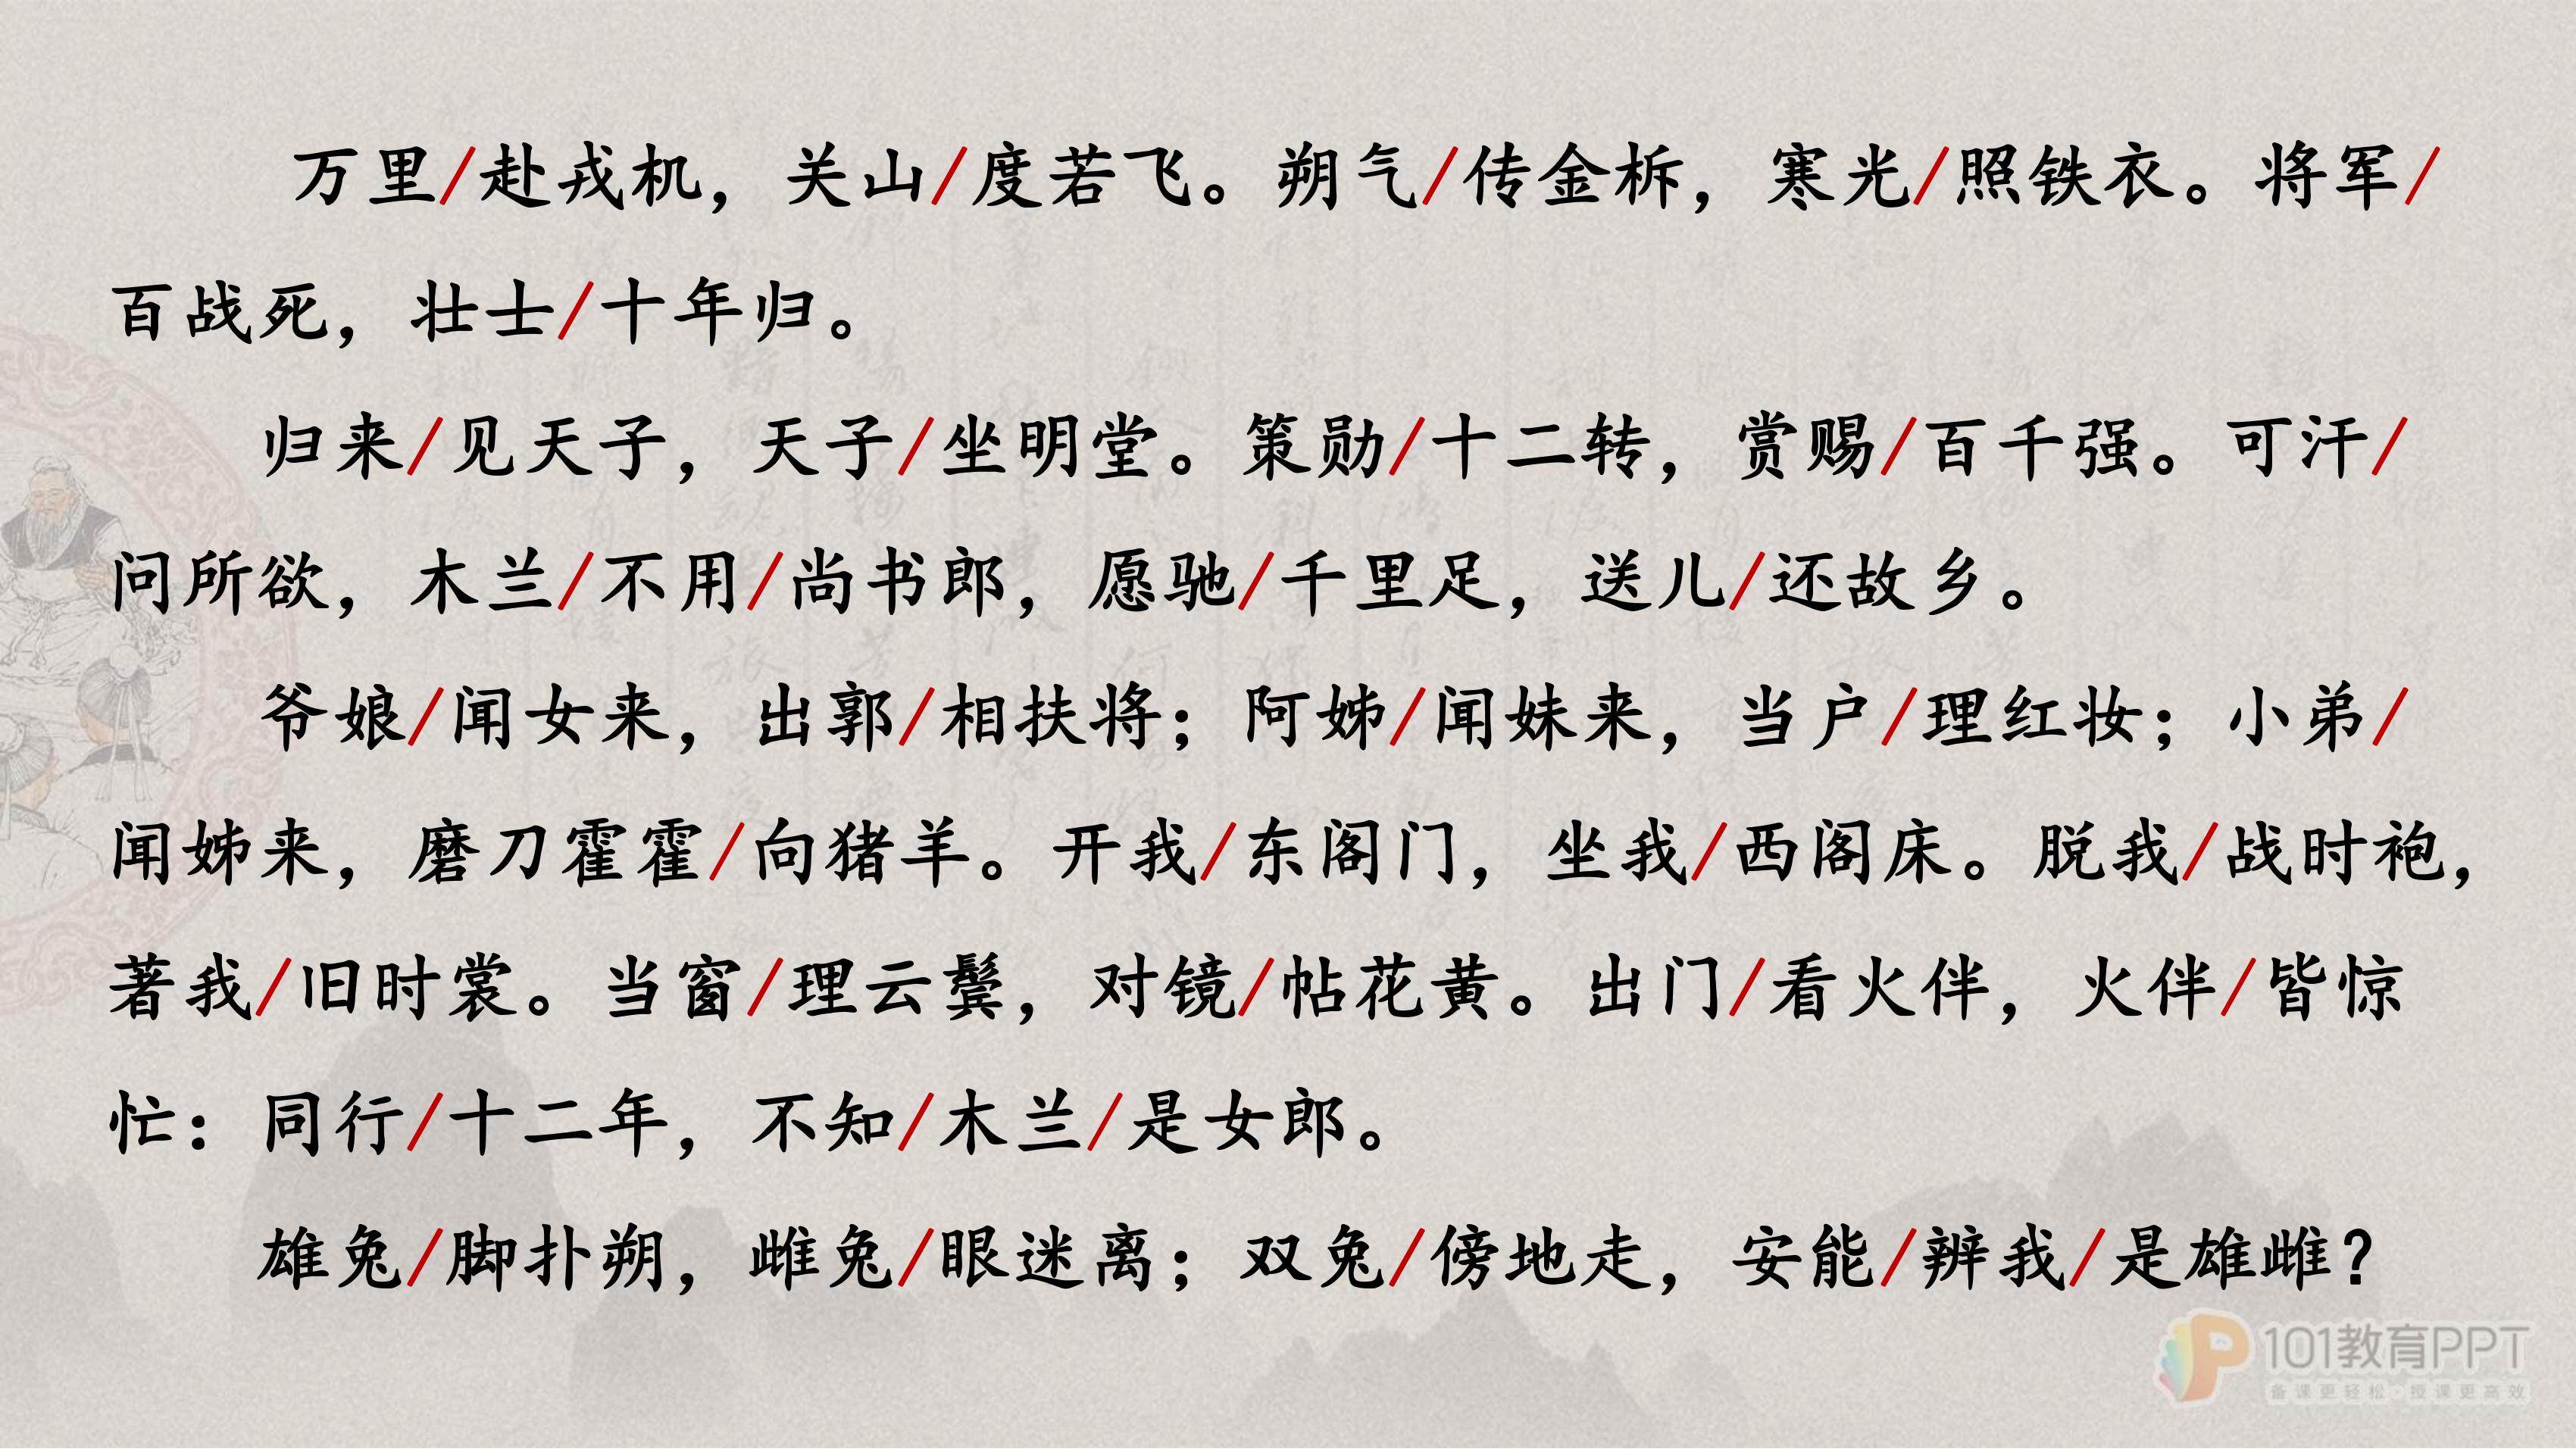 万里/赴戎机，关山/度若飞。朔气/传金柝，寒光/照铁衣。将军/
百战死，壮士/十年归。
归来/见天子，天子/坐明堂。策勋/十二转，赏赐/百千强。可汗/
问所欲，木兰/不用/尚书郎，愿驰/千里足，送儿/还故乡。
爷娘/闻女来，出郭/相扶将；阿姊/闻妹来，当户/理红妆；小弟/
闻姊来，磨刀霍霍/向猪羊。开我/东阁门，坐我/西阁床。脱我/战时袍，
著我/旧时裳。当窗/理云鬓，对镜/帖花黄。出门/看火伴，火伴/皆惊
忙：同行/十二年，不知/木兰/是女郎。
雄兔/脚扑朔，雌兔/眼迷离；双兔/傍地走，安能/辨我/是雄雌？
101教育PPT
备课更轻松·授课更高效